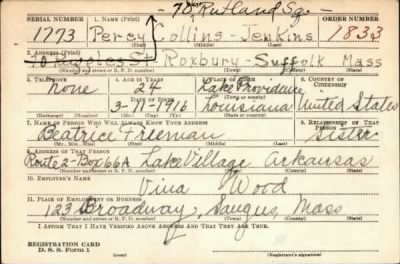 70 Rutland Sq.-
SERIAL NUMBER 1. NAME (Print) ORDER NUMBER
1773 Percy Collins - Jenkins 1833
(First) (Middle) (Last)
2. ADDRESS (Print)
St. Roxbury - Suffolk Mass
(Number and street or R. F. D. number) (Town) (County) (State)
3. TELEPHONE 4. AGE IN YEARS 5. PLACE OF BIRTH 6. COUNTRY OF CITIZENSHIP
none 24 Lake Providence
DATE OF BIRTH
3-11-1916 Louisiana United States
7. NAME OF PERSON WHO WILL ALWAYS KNOW YOUR ADDRESS 8. RELATIONSHIP OF THAT PERSON
Beatrice Freeman Sister
9. ADDRESS OF THAT PERSON
Route 2-Box 66A Lake Village Arkansas
(Number and street or R. F. D. number) (Town) (County) (State)
10. EMPLOYER'S NAME
Vina Wood
11. PLACE OF EMPLOYMENT OR BUSINESS
123 Broadway, Saugus, Mass
(Number and street or R. F. D. number) (Town) (County) (State)
I AFFIRM THAT I HAVE VERIFIED ABOVE ANSWERS AND THAT THEY ARE TRUE.
REGISTRATION CARD
D. S. S. Form 1 (Registrant's signature)